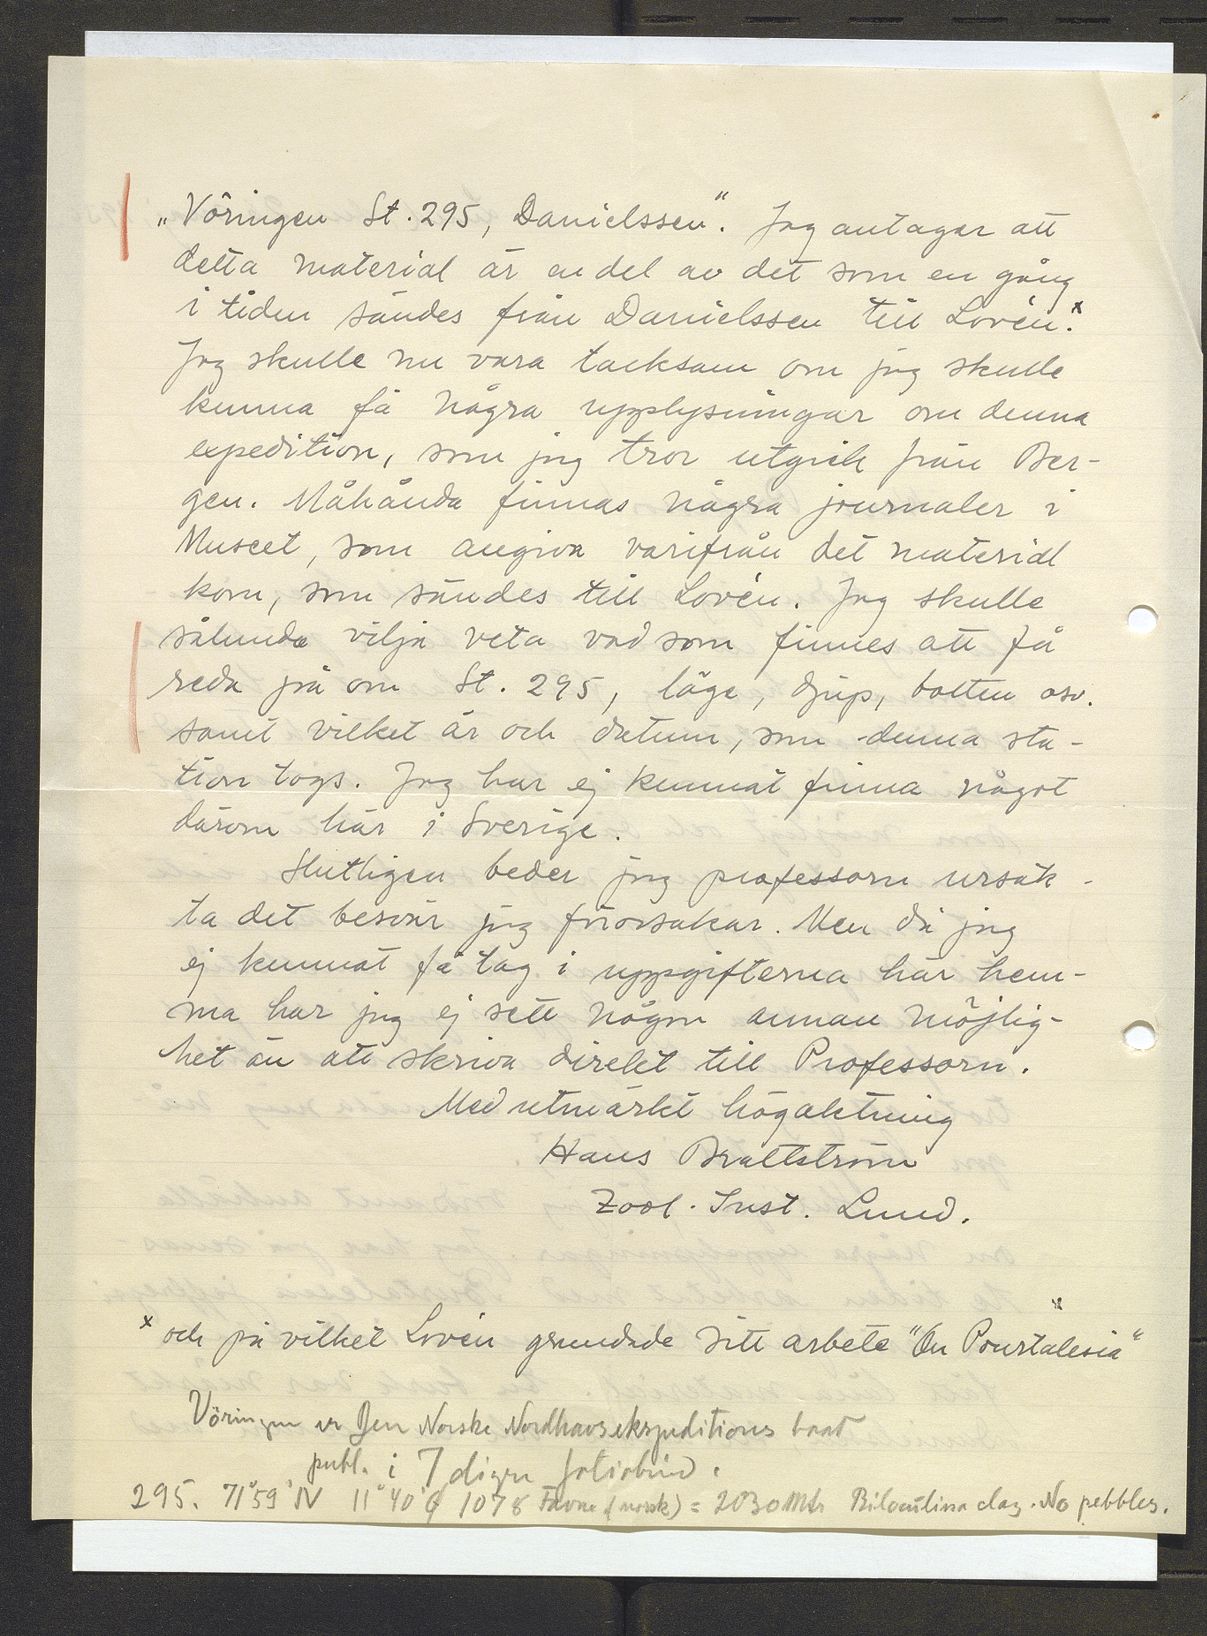 „Vöringen St. 295, Danielssen“. Jag antager att
detta material är en del av det som en gång
i tiden sändes från Danielssen till Lovén.x
Jag skulle nu vara tacksam om jag skulle
kunna få några upplysningar om denna
expedition, som jag tror utgick från Ber-
gen. Måhända finnas några journaler i
Museet, som angiva varifrån det material
kom, som sändes till Lovén. Jag skulle
sålunda vilja veta vad som finnes att få
reda på om St. 295, läge, djup, botten osv.
samt vilket år och datum, som denna sta-
tion togs. Jag har ej kunnat finna något
därom här i Sverige.
Slutligen beder jag professorn ursäk-
ta det besvär jag förorsakar. Men då jag
ej kunnat få tag i uppgifterna här hem-
ma har jag ej sett någon annan möjlig-
het än att skriva direkt till Professorn.
Med utmärkt högaktning
Hans Brattström
Zool. Inst. Lund.
x och på vilket Lovén grundade sitt arbete "On Pourtalesia"
Vöringen er Den Norske Nordhavsekspeditions baat
publ. i 7 digre foliobind.
295. 71°59'N 11°40'Ø 1078 Favne (norsk) = 2030 Mtr Biloculina clay. No pebbles.